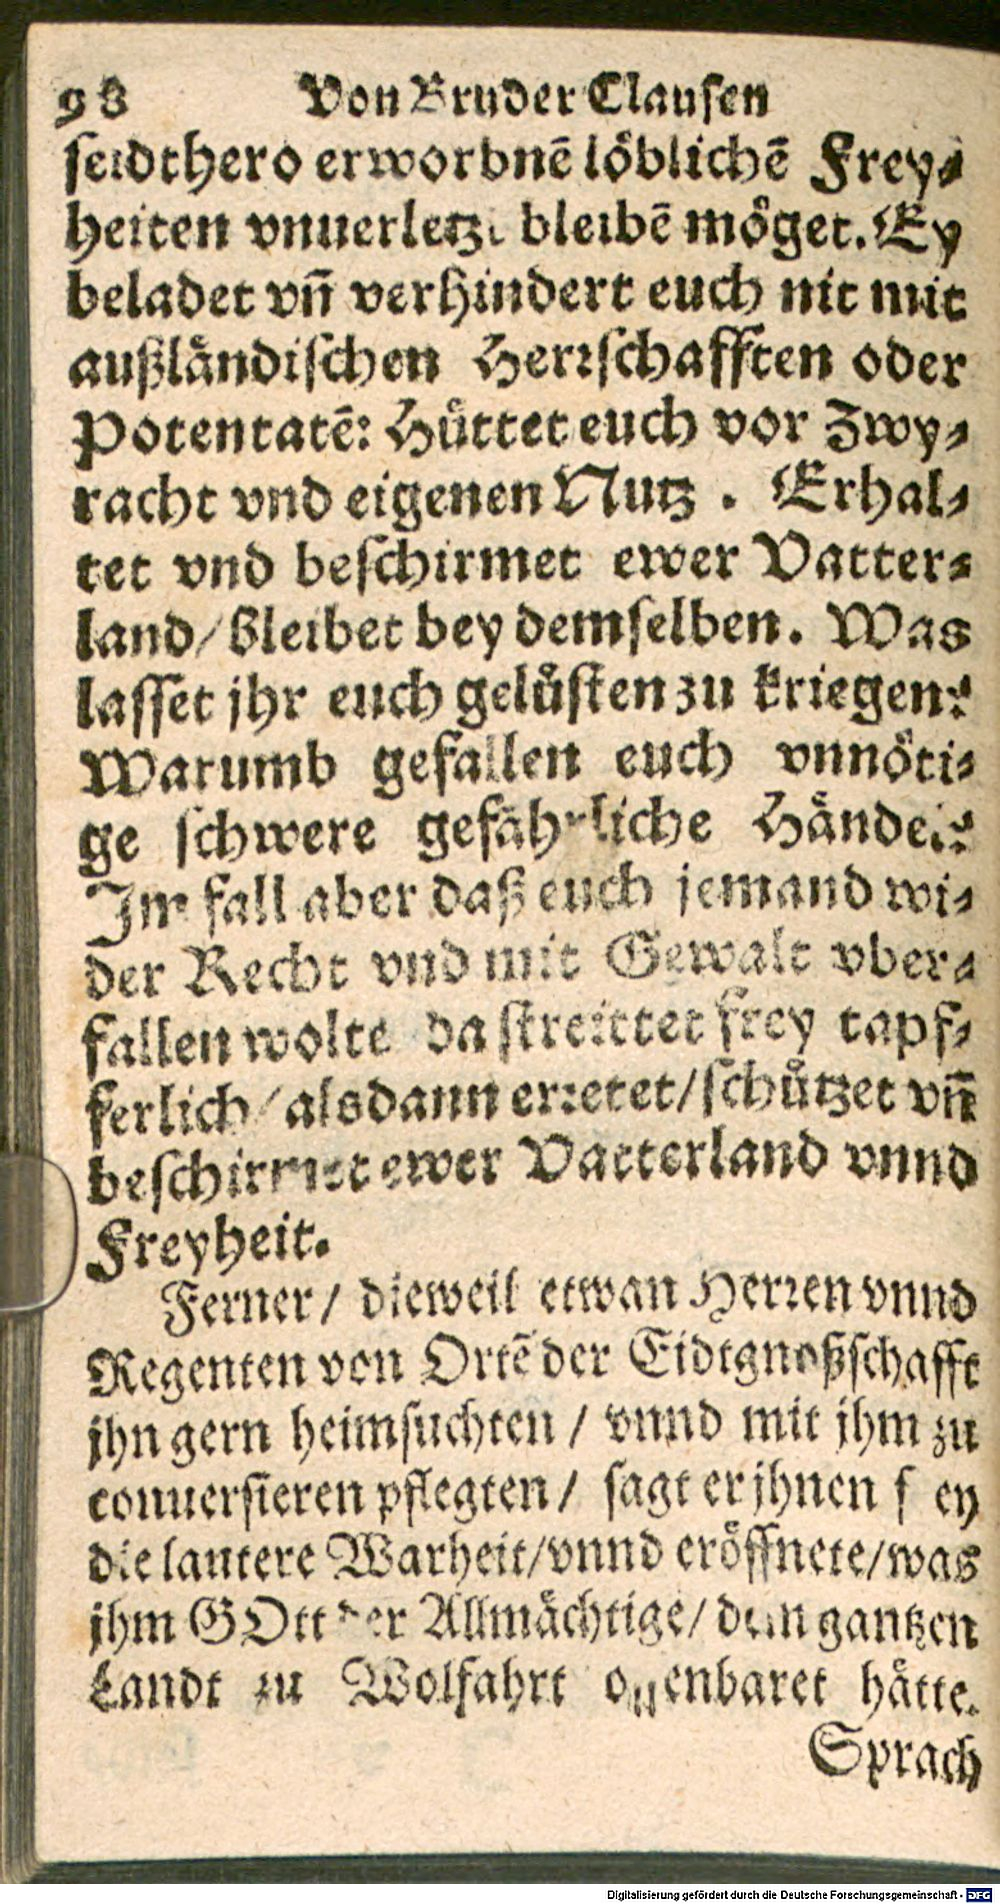 98 Von Bruder Clausen
seidthero erworbnē löblichē Frey-
heiten vnuerletzt bleibē möget. Ey
beladet vn̄ verhindert euch nit mit
außländischen Herrschafften oder
Potentatē: Hüttet euch vor Zwy-
racht vnd eigenen Nutz. Erhal-
tet vnd beschirmet ewer Vatter-
land/ bleibet bey demselben. Was
lasset jhr euch gelüsten zu kriegen?
Warumb gefallen euch vnnöti-
ge schwere gefährliche Händel?
Im fall aber daß euch jemand wi-
der Recht vnd mit Gewalt vber-
fallen wolte da streittet frey tapf-
ferlich/ alsdann erretet/ schützet vn̄
beschirmet ewer Vatterland vnnd
Freyheit.
Ferner/ dieweil etwan Herren vnnd
Regenten von Ortē der Eidtgnoßschafft
jhn gern heimsuchten/ vnnd mit jhm zu
conuersieren pflegten/ sagt er jhnen f ey
die lautere Warheit/ vnnd eröffnete/ was
jhm GOtt der Allmächtige/ dem gantzen
Landt zu Wolfahrt offenbaret hätte.
Sprach
Digitalisierung gefördert durch die Deutsche Forschungsgemeinschaft - DFG